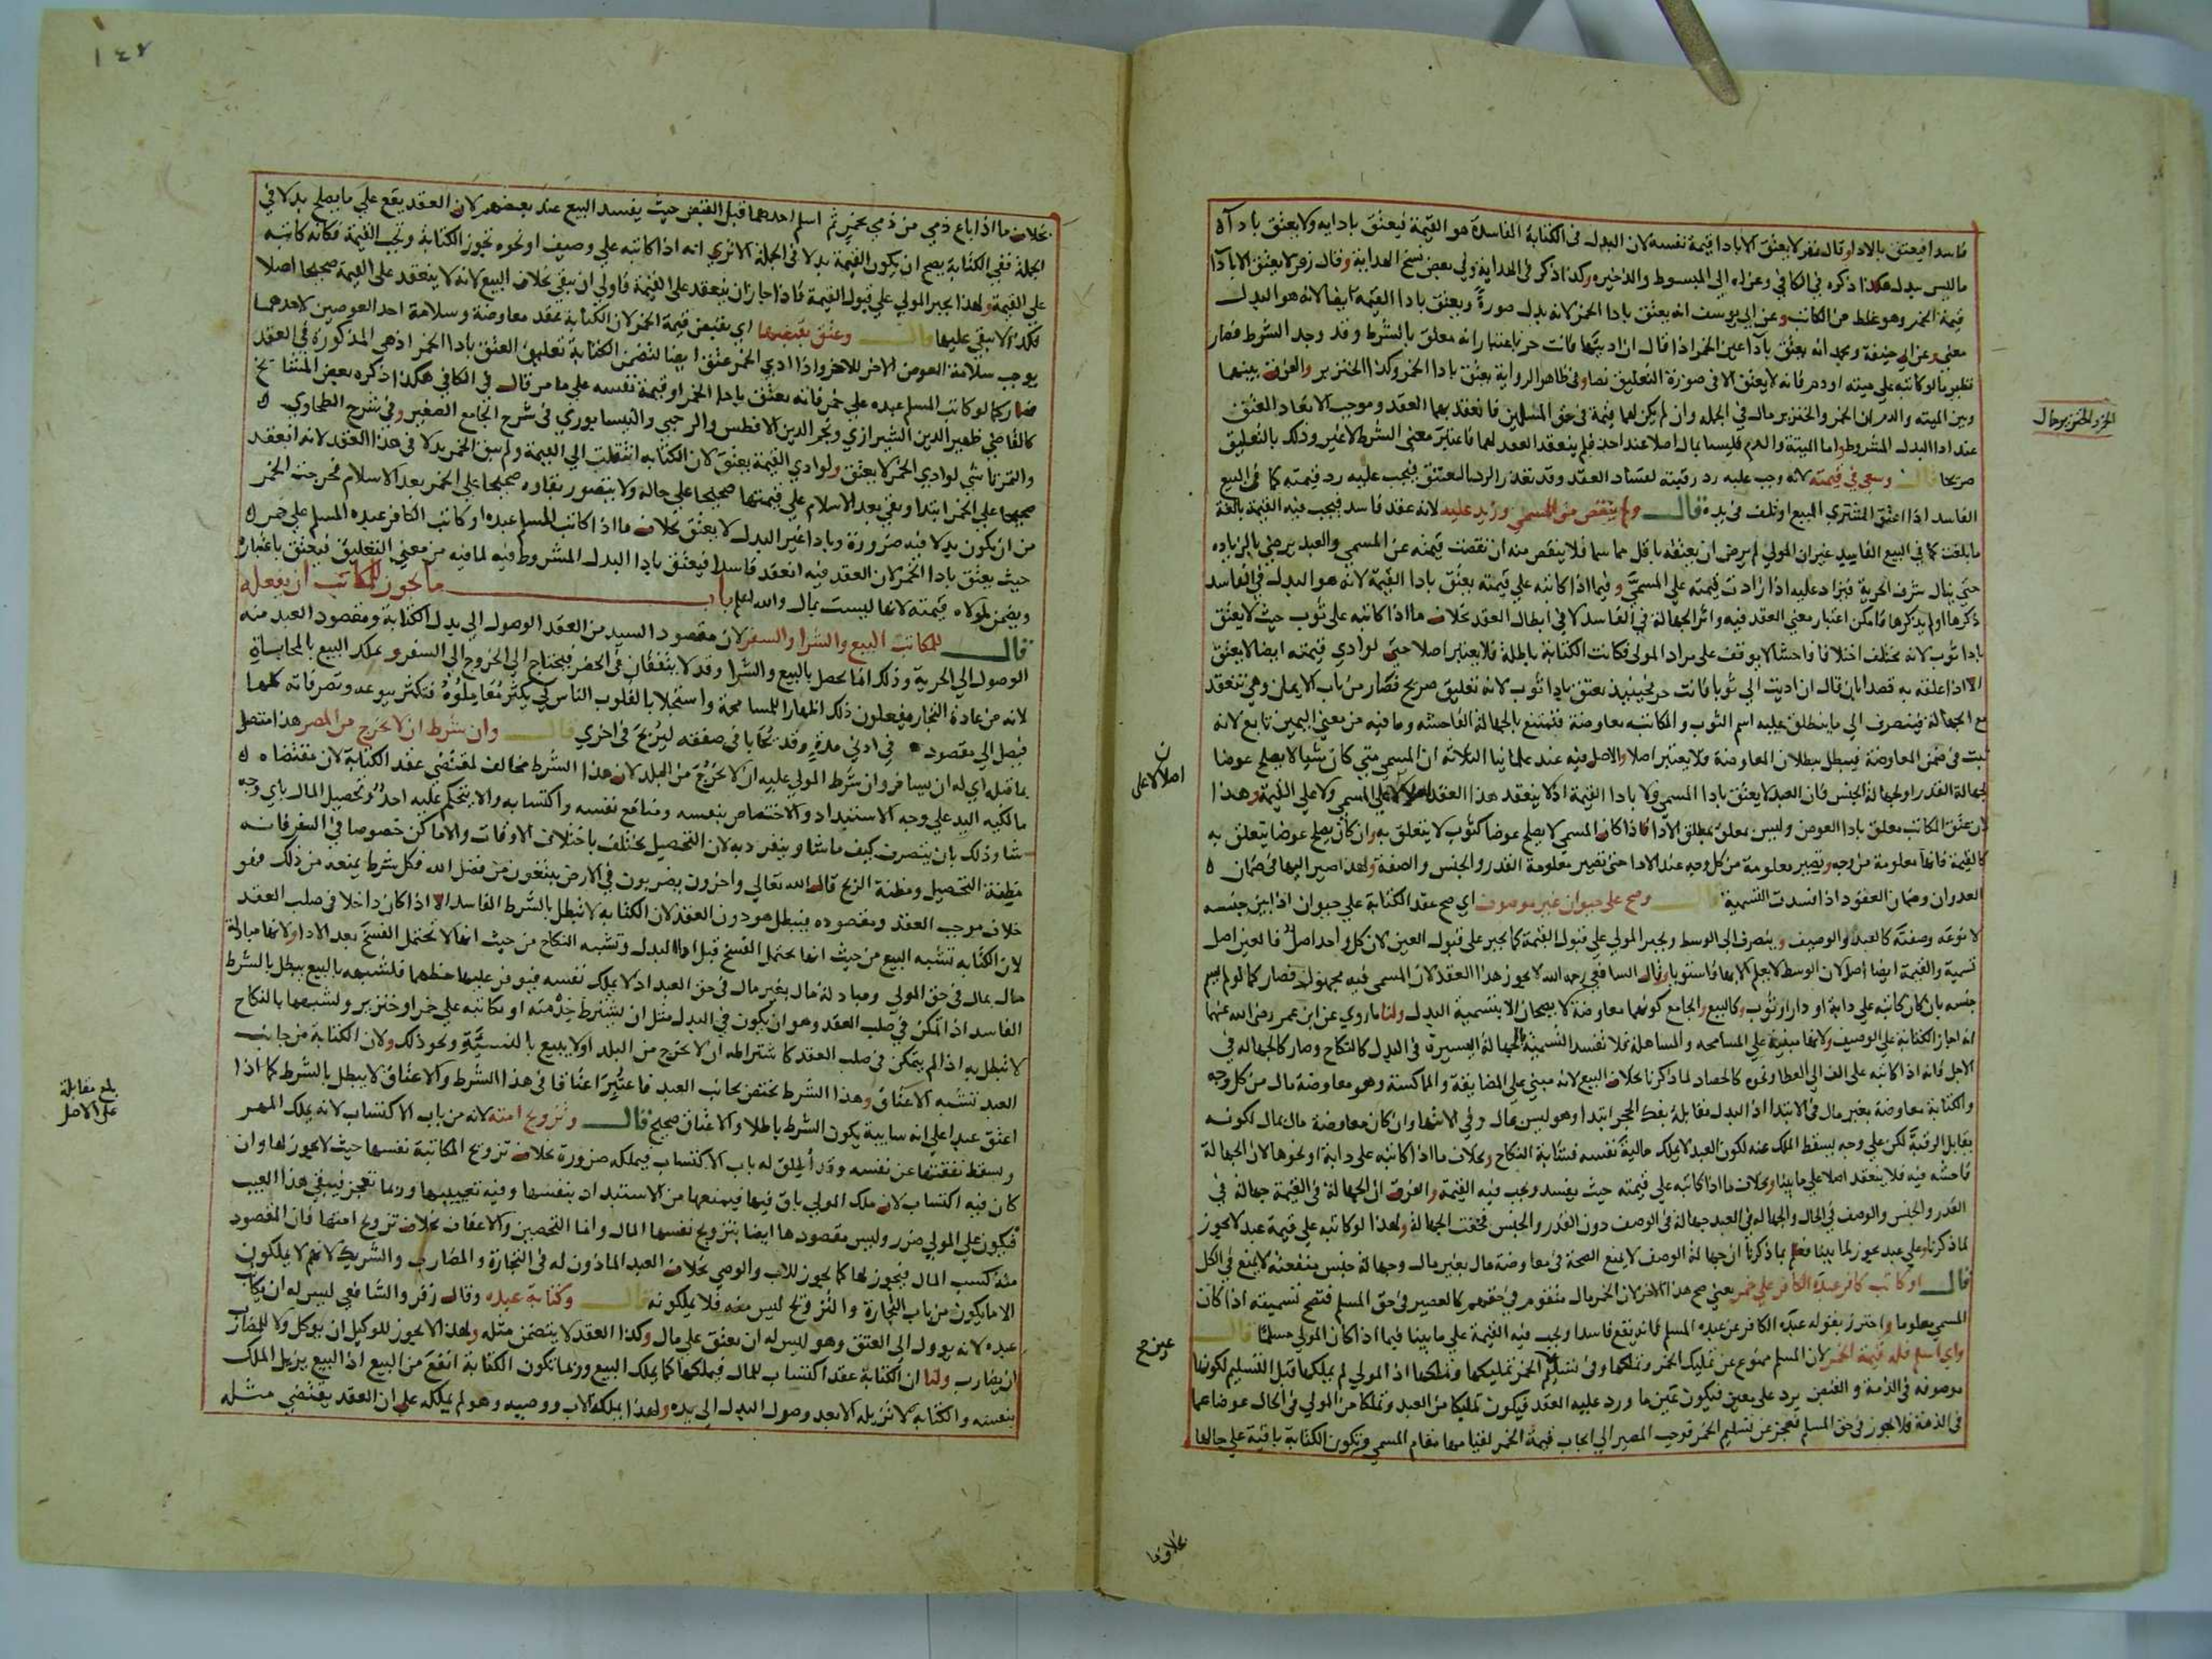 فاسدا فيعتق بالادا وقال زفر لا يعتق الا بادا قيمة نفسه لان البدل في الكتابة الفاسدة هو القيمة فيعتق بادايه ولا يعتق بادآ
ما ليس ببدل هكذا ذكره في الكافي وعزاه الي المبسوط والذخيره وكذا ذكر في الهداية وفي بعض نسخ الهداية وقال زفر لا يعتق الا بادآ
قيمة الخمر وهو غلط من الكاتب وعن ابي يوسف انه يعتق بادا الخمر لانه بدل صورة ويعتق بادا القيمة ايضا لانه هو البدل
معني وعن ابي حنيفة ومحمد انه يعتق بادآ عين الخمر اذا قال ان اديتها فانت حر باعتبار انه معلق بالشرط وقد وجد الشرط فصار
نظير ما لو كاتبه علي ميته او دم فانه لا يعتق الا في صورة التعليق نصا وفي ظاهر الرواية يعتق بادا الخمر وكذا الخنزير والفرق بينهما
وبين الميته والدم ان الخمر والخنزير مال في الجمله وان لم يكن لهما قيمة في حق المسلمين فانعقد بهما العقد وموجب الانعقاد العتق
عند ادا البدل المشروط واما الميتة والدم فليسا بمال اصلا عند احد فلم ينعقد العقد لهما فاعتبر معني الشرط لا غير وذلك بالتعليق
صريحا قال وسعي في قيمته لانه وجب عليه رد رقبته لفساد العقد وقد تعذر الرد بالعتق فيجب عليه رد قيمته كما في البيع
الفاسد اذا اعتق المشتري المبيع او تلف في يده قال ولم ينقص من المسمي وزيد عليه لانه عقد فاسد فيجب فيه القيمة بالغة
ما بلغت كما في البيع الفاسد غير ان المولي لم يرض ان يعتقه باقل مما سما فلا ينقص منه ان نقصت قيمته عن المسمي والعبد يرضي بالزياده
حتي ينال شرف الحرية فيزاد عليه اذا زادت قيمته علي المسمي وفيما اذا كاتبه علي قيمته يعتق بادا القيمة لانه هو البدل في الفاسد
ذكرها او لم يذكرها فامكن اعتبار معني العقد فيه واثر الجهالة في الفاسد لا في ابطال العقد بخلاف ما اذا كاتبه علي ثوب حيث لا يعتق
بادا ثوب لانه مختلف اختلافا فاحشا لا يوقف علي مراد المولي فكانت الكتابة باطلة فلا يعتبر اصلا حتي لو ادي قيمته ايضا لا يعتق
الا اذا علقه به قصدا بان قال ان اديت الي ثوبا فانت حر فحينيذ يعتق بادا ثوب لانه تعليق صريح فصار من باب الايمان وهي تنعقد
مع الجهالة فينصرف الي ما ينطلق عليه اسم الثوب والمكاتبه معاوضة فتمتنع بالجهالة الفاحشه وما فيه من معني اليمين تابع لانه
ثبت في ضمن المعاوضة فيبطل ببطلان المعاوضة فلا يعتبر اصلا والاصل فيه عند علمائنا الثلاثه ان المسمي متي كان شيا لا يصلح عوضا
لجهالة القدر او لجهالة الجنس فان العبد لا يعتق بادا المسمي ولا بادا القيمة اذ لا ينعقد هذا العقد لا علي المسمي ولا علي القيمة وهذا
لان عتق المكاتب معلق بادا العوض وليس بمعلق بمطلق الادا فاذا كان المسمي لا يصلح عوضا كثوب لا يتعلق به وان كان يصلح عوضا يتعلق به
كالقيمة فانها معلومة من وجه وتصير معلومة من كل وجه عند الادا حتي تصير معلومة القدر والجنس والصفة ولهذا اصير اليها في ضمان ه
العدوان وضمان العقود اذا فسدت التسمية قال وصح علي حيوان غير موصوف اي صح عقد الكتابة علي حيوان اذا بين جنسه
لا نوعه وصفته كالعبد والوصيف وينصرف الي الوسط ويجبر المولي علي قبول القيمة كما يجبر علي قبول العين لان كل واحد اصل فالعين اصل
تسمية والقيمة ايضا اصل لان الوسط لا يعلم الا بها فاستويا وقال الشافعي رحمه الله لا يجوز هذا العقد لان المسمي فيه مجهول فصار كما لو لم يسم
جنسه بان كان كاتبه علي دابة او دار او ثوب وكالبيع والجامع كونهما معاوضة لا يصحان الا بتسمية البدل ولنا ما روي عن ابن عمر رضي الله عنهما
انه اجاز الكتابة علي الوصيف ولانها مبنية علي المسامحه والمساهلة فلا تفسد التسمية بالجهالة اليسيرة في البدل كالنكاح وصار كالجهاله في
الاجل فانه اذا كاتبه علي الف الي العطا ونحوه كالحصاد لما ذكرنا بخلاف البيع لانه مبني علي المضايقة والماكسة وهو معاوضة مال من كل وجه
والكتابة معاوضة بغير مال في الابتدا اذ البدل مقابلة بفك الحجر ابتدا وهو ليس بمال وفي الانتها وان كان معاوضة مال بمال لكونه
يقابل الرقبة لكن علي وجه يسقط الملك عنه لكون العبد لا يملك مالية نفسه فشابة النكاح وبخلاف ما اذا كاتبه علي دابة او نحوها لان الجهالة
فاحشه فيه فلا ينعقد اصلا علي ما بينا وبخلاف ما اذا كاتبه علي قيمته حيث يفسد ويجب فيه القيمة والفرق ان الجهالة في القيمة جهالة في
القدر والجنس والوصف في الحال والجهاله في العبد جهالة في الوصف دون القدر والجنس فخفت الجهالة ولهذا لو كاتبه علي قيمة عبد لا يجوز
لما ذكرنا وعلي عبد يجوز لما بينا فعلم بما ذكرنا ان جهالة الوصف لا يمنع الصحة في معاوضة مال بغير مال وجهالة جنس منفعته لا يمنع في الكل
قال او كاتب كافر عبده الكافر علي خمر يعني صح هذا الاخر لان الخمر مال متقوم في حقهم كالعصير في حق المسلم فتصح تسميته اذا كان
المسمي معلوما واحترز بقوله عبده الكافر عن عبده المسلم فانه يقع فاسدا ويجب فيه القيمة علي ما بينا فيما اذا كان المولي مسلما قال
واي اسلم فله قيمة الخمر لان المسلم ممنوع عن تمليك الخمر وتملكها وفي تسليم الخمر تمليكها وتملكها اذ المولي لم يملكها قبل التسليم لكونها
موصوفه في الذمة والقبض يرد علي معين فيكون غير ما ورد عليه العقد فيكون تمليكا من العبد وتملكا من المولي في الحال عوضا عما
في الذمة فلا يجوز في حق المسلم فعجز عن تسليم الخمر فوجب المصير الي ايجاب قيمة الخمر لقيامها مقام المسمي وتكون الكتابة باقية علي حالها
الخمر والخنزير مال
اصلا لا علي
بخلاف ما
١٤٧
بخلاف ما اذا باع ذمي من ذمي بخمر ثم اسلم احدهما قبل القبض حيث يفسد البيع عند بعضهم لان العقد يقع علي ما يصلح بدلا في
الجملة ففي الكتابة يصح ان يكون القيمة بدلا في الجملة الا تري انه اذا كاتبه علي وصيف او نحوه تجوز الكتابة وتجب القيمة فكانه كاتبه
علي القيمة ولهذا يجبر المولي علي قبول القيمة فاذا جاز ان ينعقد علي القيمة فاولي ان يبقي بخلاف البيع لانه لا ينعقد علي القيمة صحيحا اصلا
فكذا لا يبقي عليها قال وعتق بقبضها اي بقبض قيمة الخمر لان الكتابة عقد معاوضة وسلامة احد العوضين لاحدهما
يوجب سلامة العوض الاخر للاخر واذا ادي الخمر عتق ايضا لتضمن الكتابة تعليق العتق بادا الخمر اذ هي المذكورة في العقد
فصار كما لو كاتب المسلم عبده علي خمر فانه يعتق بادا الخمر او قيمة نفسه علي ما مر قال في الكافي هكذا ذكره بعض المشايخ
كالقاضي ظهير الدين الشيرازي ونجم الدين الافطس والرحبي والنيسابوري في شرح الجامع الصغير وفي شرح الطحاوي ه
والتمرتاشي لو ادي الخمر لا يعتق ولو ادي القيمة يعتق لان الكتابه انتقلت الي القيمة ولم يبق الخمر بدلا في هذا العقد لانه انعقد
صحيحا علي الخمر ابتدا وبقي بعد الاسلام علي قيمتها صحيحا علي حاله ولا يتصور بقاوه صحيحا علي الخمر بعد الاسلام فخرجت الخمر
من ان يكون بدلا فيه ضرورة وبادا غير البدل لا يعتق بخلاف ما اذا كاتب المسلم عبده او كاتب الكافر عبده المسلم علي خمر ه
حيث يعتق بادا الخمر لان العقد فيه انعقد فاسدا فيعتق بادا البدل المشروط فيه لما فيه من معني التعليق فيعتق باعتباره
ويضمن لمولاه قيمته لانها ليست بمال والله اعلم باب ما يجوز للمكاتب ان يفعله
قال للمكاتب البيع والشرا والسفر لان مقصود السيد من العقد الوصول الي بدل الكتابة ومقصود العبد منه
الوصول الي الحرية وذلك انما يحصل بالبيع والشرا وقد لا يتفقان في الحضر فيحتاج الي الخروج الي السفر ويملك البيع بالمحاباة
لانه من عادة التجار يفعلون ذلك اظهارا للمسامحة واستجلابا لقلوب الناس كي يكثر معاملوه فتكثر بيوعه وتصرفاته كلها
فيصل الي مقصوده في ادني مدة وقد يحابا في صفقه ليربح في اخري قال وان شرط ان لا يخرج من المصر هذا متصل
بما قبله اي له ان يسافر وان شرط المولي عليه ان لا يخرج من البلد لان هذا الشرط مخالف لمقتضي عقد الكتابة لان مقتضاه ه
مالكية اليد علي وجه الاستبداد والاختصاص بنفسه ومنافع نفسه واكتسابه والا يتحكم عليه احد وتحصيل المال باي وجه
شا وذلك بان يتصرف كيف ما شا وينفرد به لان التحصيل يختلف باختلاف الاوقات والاماكن خصوصا في السفر فانه
مظنة التحصيل ومظنة الربح قال الله تعالي واخرون يضربون في الارض يبتغون من فضل الله فكل شرط يمنعه من ذلك فهو
خلاف موجب العقد ومقصوده فيبطل هو دون العقد لان الكتابه لا تبطل بالشرط الفاسد الا اذا كان داخلا في صلب العقد
لان الكتابه تشبه البيع من حيث انها يحتمل الفسخ قبل ادا البدل وتشبه النكاح من حيث انها لا تحتمل الفسخ بعد الادا ولانها مبادلة
مال بمال في حق المولي ومبادلة مال بغير مال في حق العبد اذ لا يملك نفسه فيوفر عليهما حظهما فلشبهه بالبيع يبطل بالشرط
الفاسد اذا تمكن في صلب العقد وهو ان يكون في البدل مثل ان يشترط خدمته او يكاتبه علي خمر او خنزير ولشبهها بالنكاح
لا تبطل به اذا لم يتمكن في صلب العقد كاشتراطه ان لا يخرج من البلد او لا يبيع بالنسيئة ونحو ذلك ولان الكتابة من جانب
العبد تشبه الاعتاق وهذا الشرط يختص بجانب العبد فاعتبر اعتاقا في هذا الشرط والاعتاق لا يبطل بالشرط كما اذا
اعتق عبدا علي انه سايبة يكون الشرط باطلا والاعتاق صحيح قال وتزويج امته لانه من باب الاكتساب لانه يملك المهر
ويسقط نفقتها عن نفسه وقد اطلق له باب الاكتساب فيملكه ضرورة بخلاف تزويج المكاتبة نفسها حيث لا يجوز لها وان
كان فيه اكتساب لان ملك المولي باق فيها فيمنعها من الاستبداد بنفسها وفيه تعييبها وربما تعجز فيبقي هذا العيب
فيكون علي المولي ضرر وليس مقصودها ايضا بتزويج نفسها المال وانما التحصين والاعفاف بخلاف تزويج امتها فان المقصود
منه كسب المال فيجوز لها كما يجوز للاب والوصي بخلاف العبد الماذون له في التجارة والمضارب والشريك لانهم لا يملكون
الا ما يكون من باب التجارة والتزويج ليس منه فلا يملكونه قال وكتابة عبده وقال زفر والشافعي ليس له ان يكاتب
عبده لانه يوول الي العتق وهو ليس له ان يعتق علي مال وكذا العقد لا يتضمن مثله ولهذا لا يجوز للوكيل ان يوكل ولا للمضارب
ان يضارب ولنا ان الكتابة عقد اكتساب للمال فيملكها كما يملك البيع وربما تكون الكتابة انفع من البيع اذ البيع يزيل الملك
بنفسه والكتابة لا تزيله الا بعد وصول البدل الي يده ولهذا يملكه الاب ووصيه وهو لم يملكه علي ان العقد يقتضي مثله
بلغ مقابلة
علي الاصل